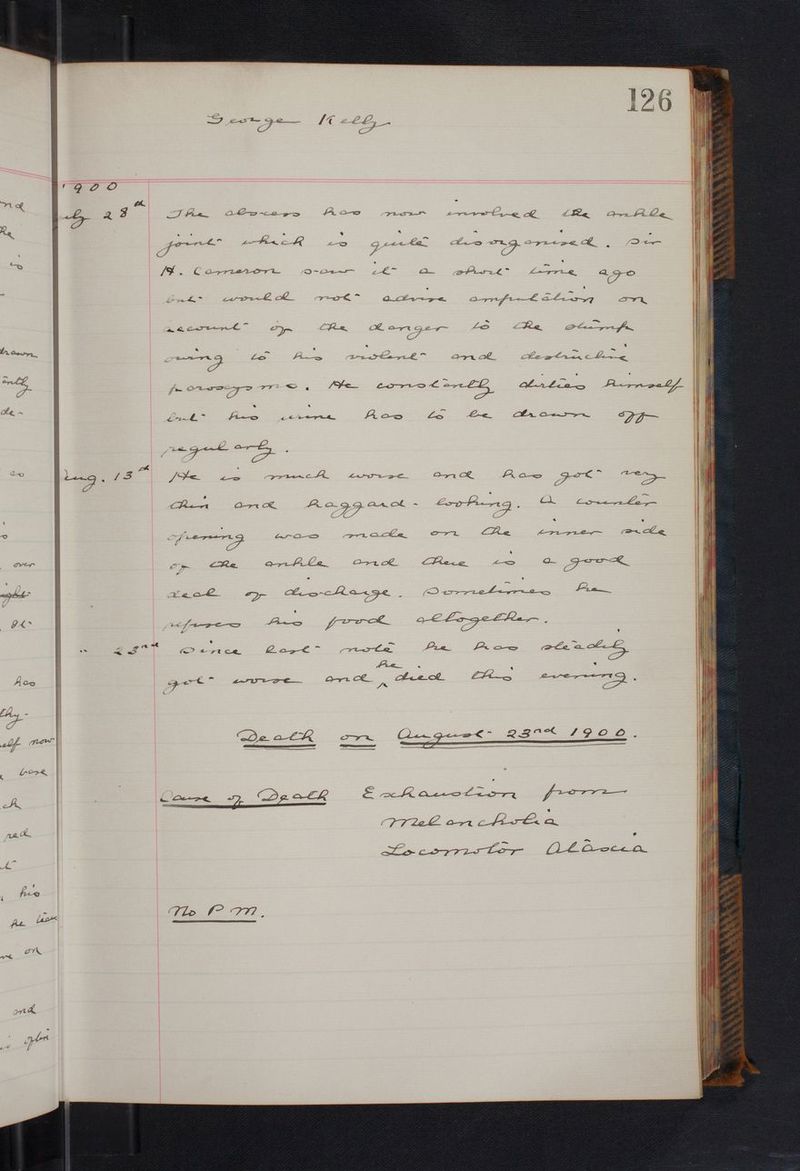 126
George Kelly
1900
July 28th The abscess has now involved the ankle
joint which is quite disorganised. Sir
H. Cameron saw it a short time ago
but would not advise amputation on
account of the danger to the stump
owing to his violent and destructive
paroxysms. He constantly dirties himself
but his urine has to be drawn off
regularly.
Aug. 13th He is much worse and has got very
thin and haggard-looking. A counter
opening was made on the inner side
of the ankle and there is a good
deal of discharge. Sometimes he
refuses his food altogether.
" 23rd Since last note he has steadily
got worse and he died this evening.
Death on August 23rd 1900.
Cause of Death Exhaustion from
Melancholia
Locomotor Ataxia
No P M.
nd
he
is
drawn
ently
de-
as
over
has
thy-
elf now
base
ch
red
his
on
and